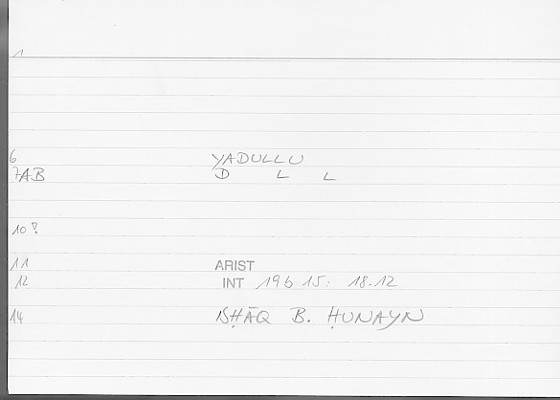 1
6 YADULLU
7AB D L L
10?
11 ARIST
12 INT 19b 15: 18.12
14 ISḤĀQ B. ḤUNAYN